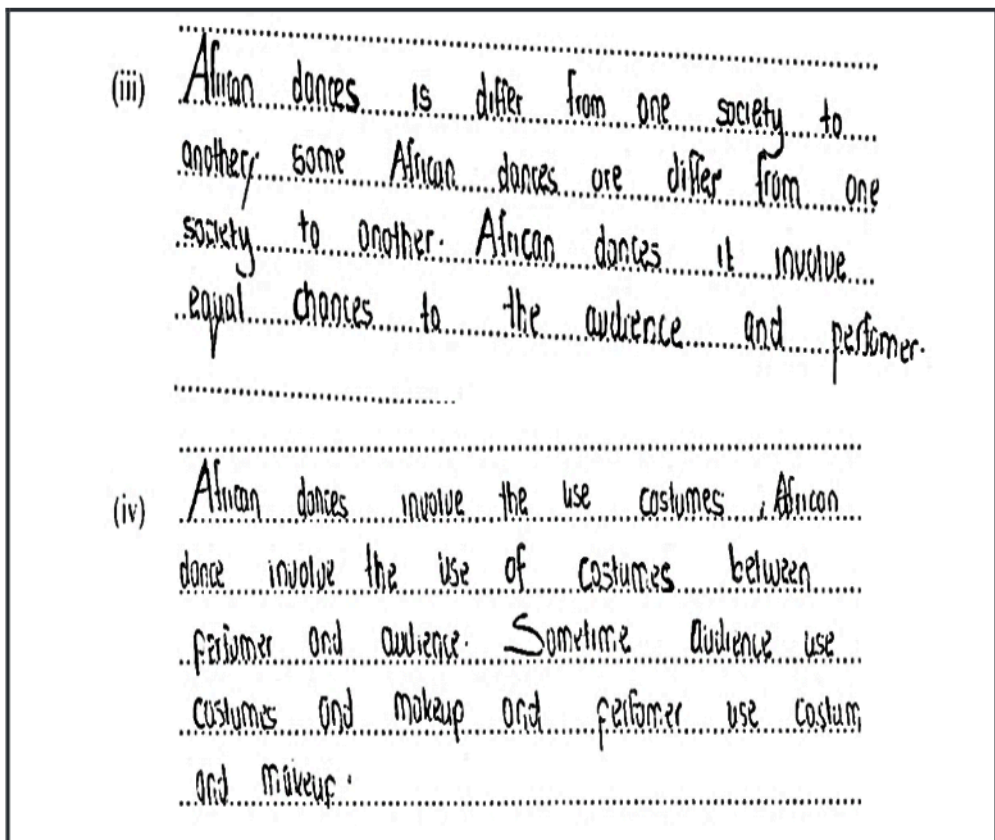 (iii) African dances is differ from one society to
another, some African dances are differ from one
society to another. African dances it involve
equal chances to the audience and perfomer.
(iv) African dances involve the use costumes, African
dance involve the use of costumes between
perfomer and audience. Sometime audience use
costumes and makeup and perfomer use costum
and makeup.